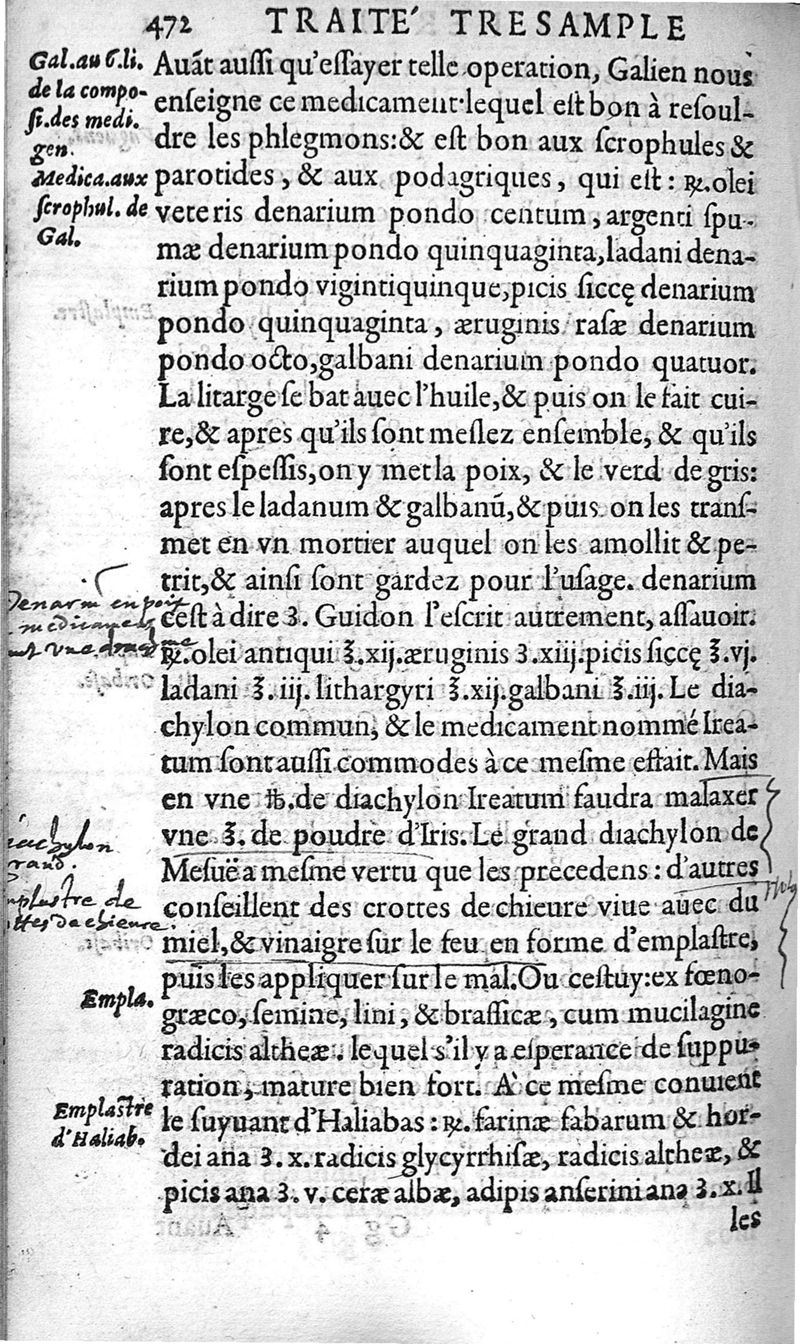 472 TRAITE' TRESAMPLE
Gal.au 6.li.
de la compo-
ſi.des medi.
gen.
Medica.aux
ſcrophul. de
Gal.
Auãt auſſi qu'eſſayer telle operation, Galien nous
enſeigne ce medicament lequel eſt bon à reſoul-
dre les phlegmons:& eſt bon aux ſcrophules &
parotides, & aux podagriques, qui eſt: ℞.olei
veteris denarium pondo centum, argenti ſpu-
mæ denarium pondo quinquaginta,ladani dena-
rium pondo vigintiquinque,picis ſiccę denarium
pondo quinquaginta, æruginis raſæ denarium
pondo octo,galbani denarium pondo quatuor.
La litarge ſe bat auec l'huile,& puis on le fait cui-
re,& apres qu'ils ſont meſlez enſemble, & qu'ils
ſont eſpeſſis,on y met la poix, & le verd de gris:
apres le ladanum & galbanũ,& puis on les tranſ-
met en vn mortier auquel on les amollit & pe-
trit,& ainſi ſont gardez pour l'uſage. denarium
Denarm en poix
medicament
vne
c'eſt à dire ʒ. Guidon l'eſcrit autrement, aſſauoir.
℞.olei antiqui ℥.xij.æruginis ʒ.xiij.picis ſiccę ℥.vj.
ladani ℥.iij.lithargyri ℥.xij.galbani ℥.iij. Le dia-
chylon commun, & le medicament nommé Irea-
tum ſont auſſi commodes à ce meſme eſtait. Mais
en vne ℔.de diachylon Ireatum faudra malaxer
vne ℥. de poudre d'Iris. Le grand diachylon de
Meſuë a meſme vertu que les precedens : d'autres
conſeillent des crottes de chieure viue auec du
miel,& vinaigre ſur le feu en forme d'emplaſtre,
puis les appliquer ſur le mal.Ou ceſtuy:ex fœno-
græco, ſemine, lini, & braſſicæ, cum mucilagine
radicis altheæ. lequel s'il y a eſperance de ſuppu-
ration, mature bien fort. A ce meſme conuient
le ſuyuant d'Haliabas : ℞. farinæ fabarum & hor-
dei ana ʒ. x. radicis glycyrrhiſæ, radicis altheæ, &
picis ana ʒ. v. ceræ albæ, adipis anſerini ana ʒ.x. Il
les
iachylon
rand.
mplastre de
ottes de chieure.
Empla.
Emplaſtre
d'Haliab.